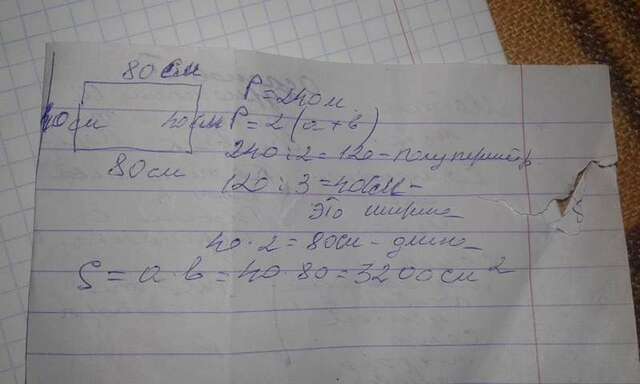 80 см
40 см 40 см
80 см
P = 240 м
P = 2(a+b)
240 : 2 = 120 - полупериметр
120 : 3 = 40 см -
это ширина
40 · 2 = 80 см - длина
S = a · b = 40 · 80 = 3200 см²